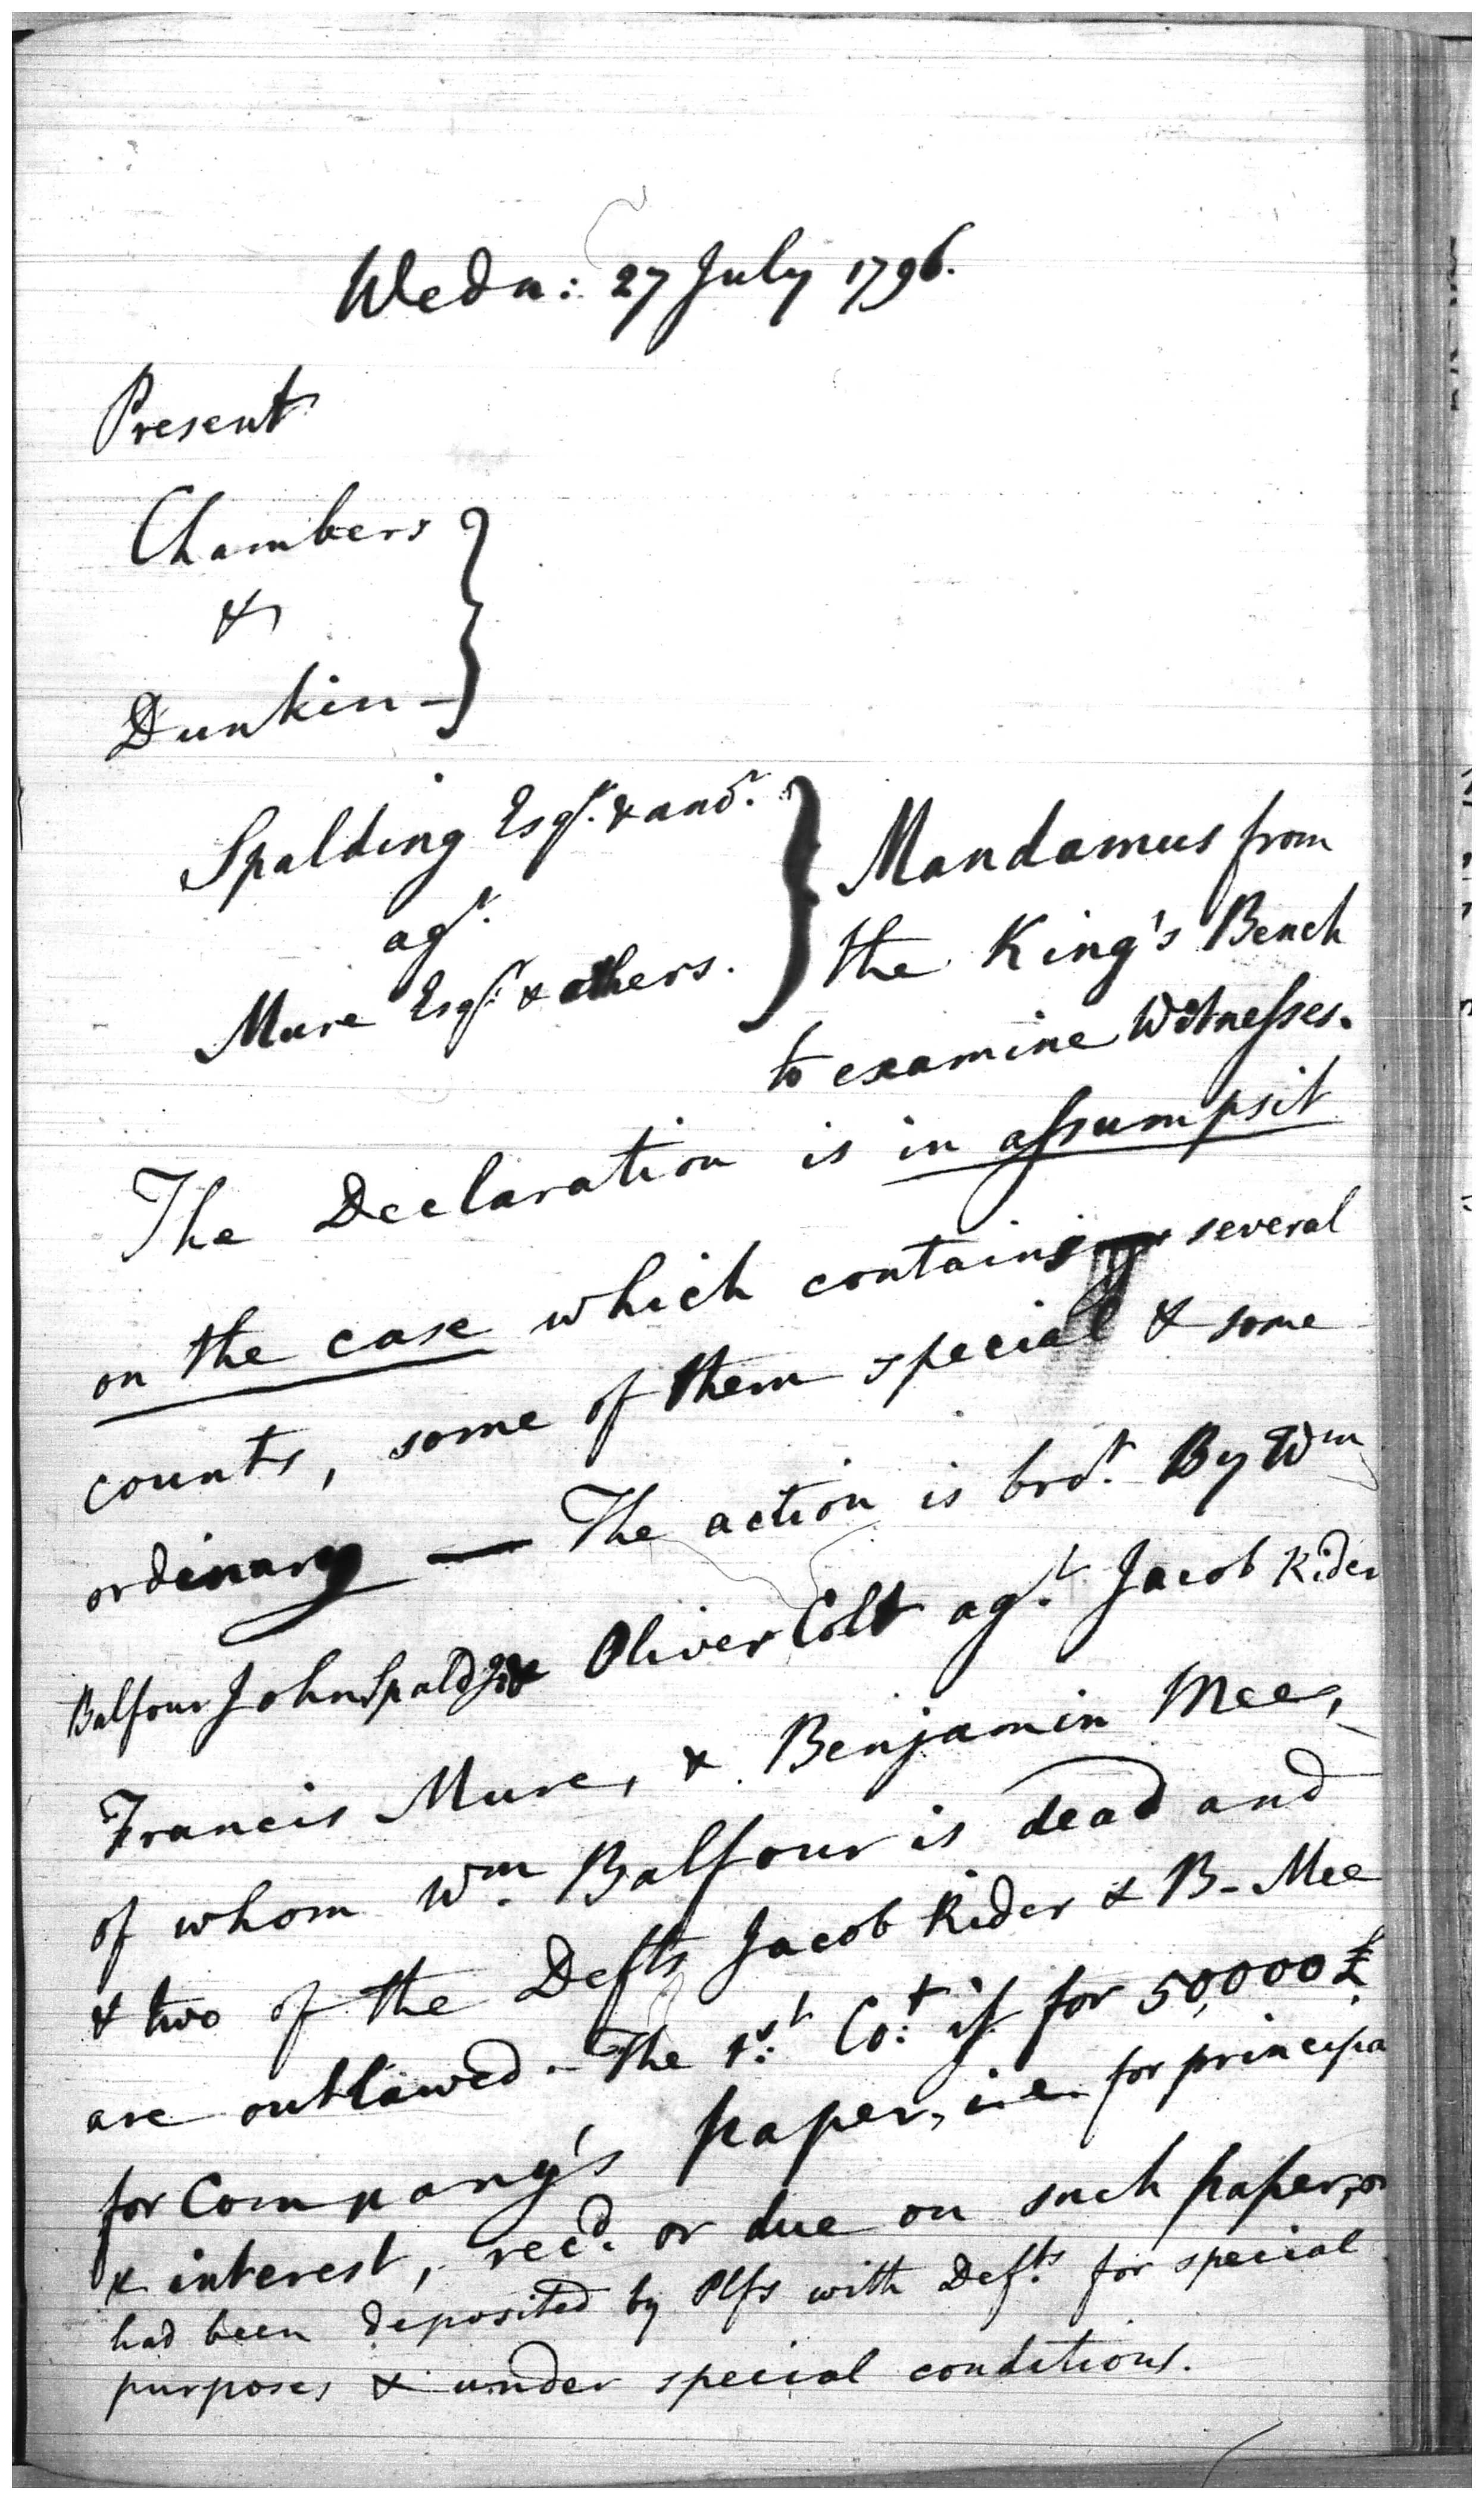 Wedn: 27 July 1796.
Present
Chambers
&
Dunkin —
Spalding Esqr. & anor.
agt.
Mure Esqr. & others.
Mandamus from
the King's Bench
to examine Witnesses.
The Declaration is in assumpsit
on the case which contains several
counts, some of them special & some
ordinary — The action is brot. By Wm
Balfour John Spaldg. & Oliver Colt agt. Jacob Rider
Francis Mure, & Benjamin Mee,
of whom Wm. Balfour is dead and
& two of the Defts Jacob Rider & B- Mee
are outlawed. - The 1st. Cot. is for 50,000 £
for Company's paper, i.e. for principa
& interest, recd. or due on such paper, 
had been deposited by Plfs with Defts. for special
purposes & under special conditions.